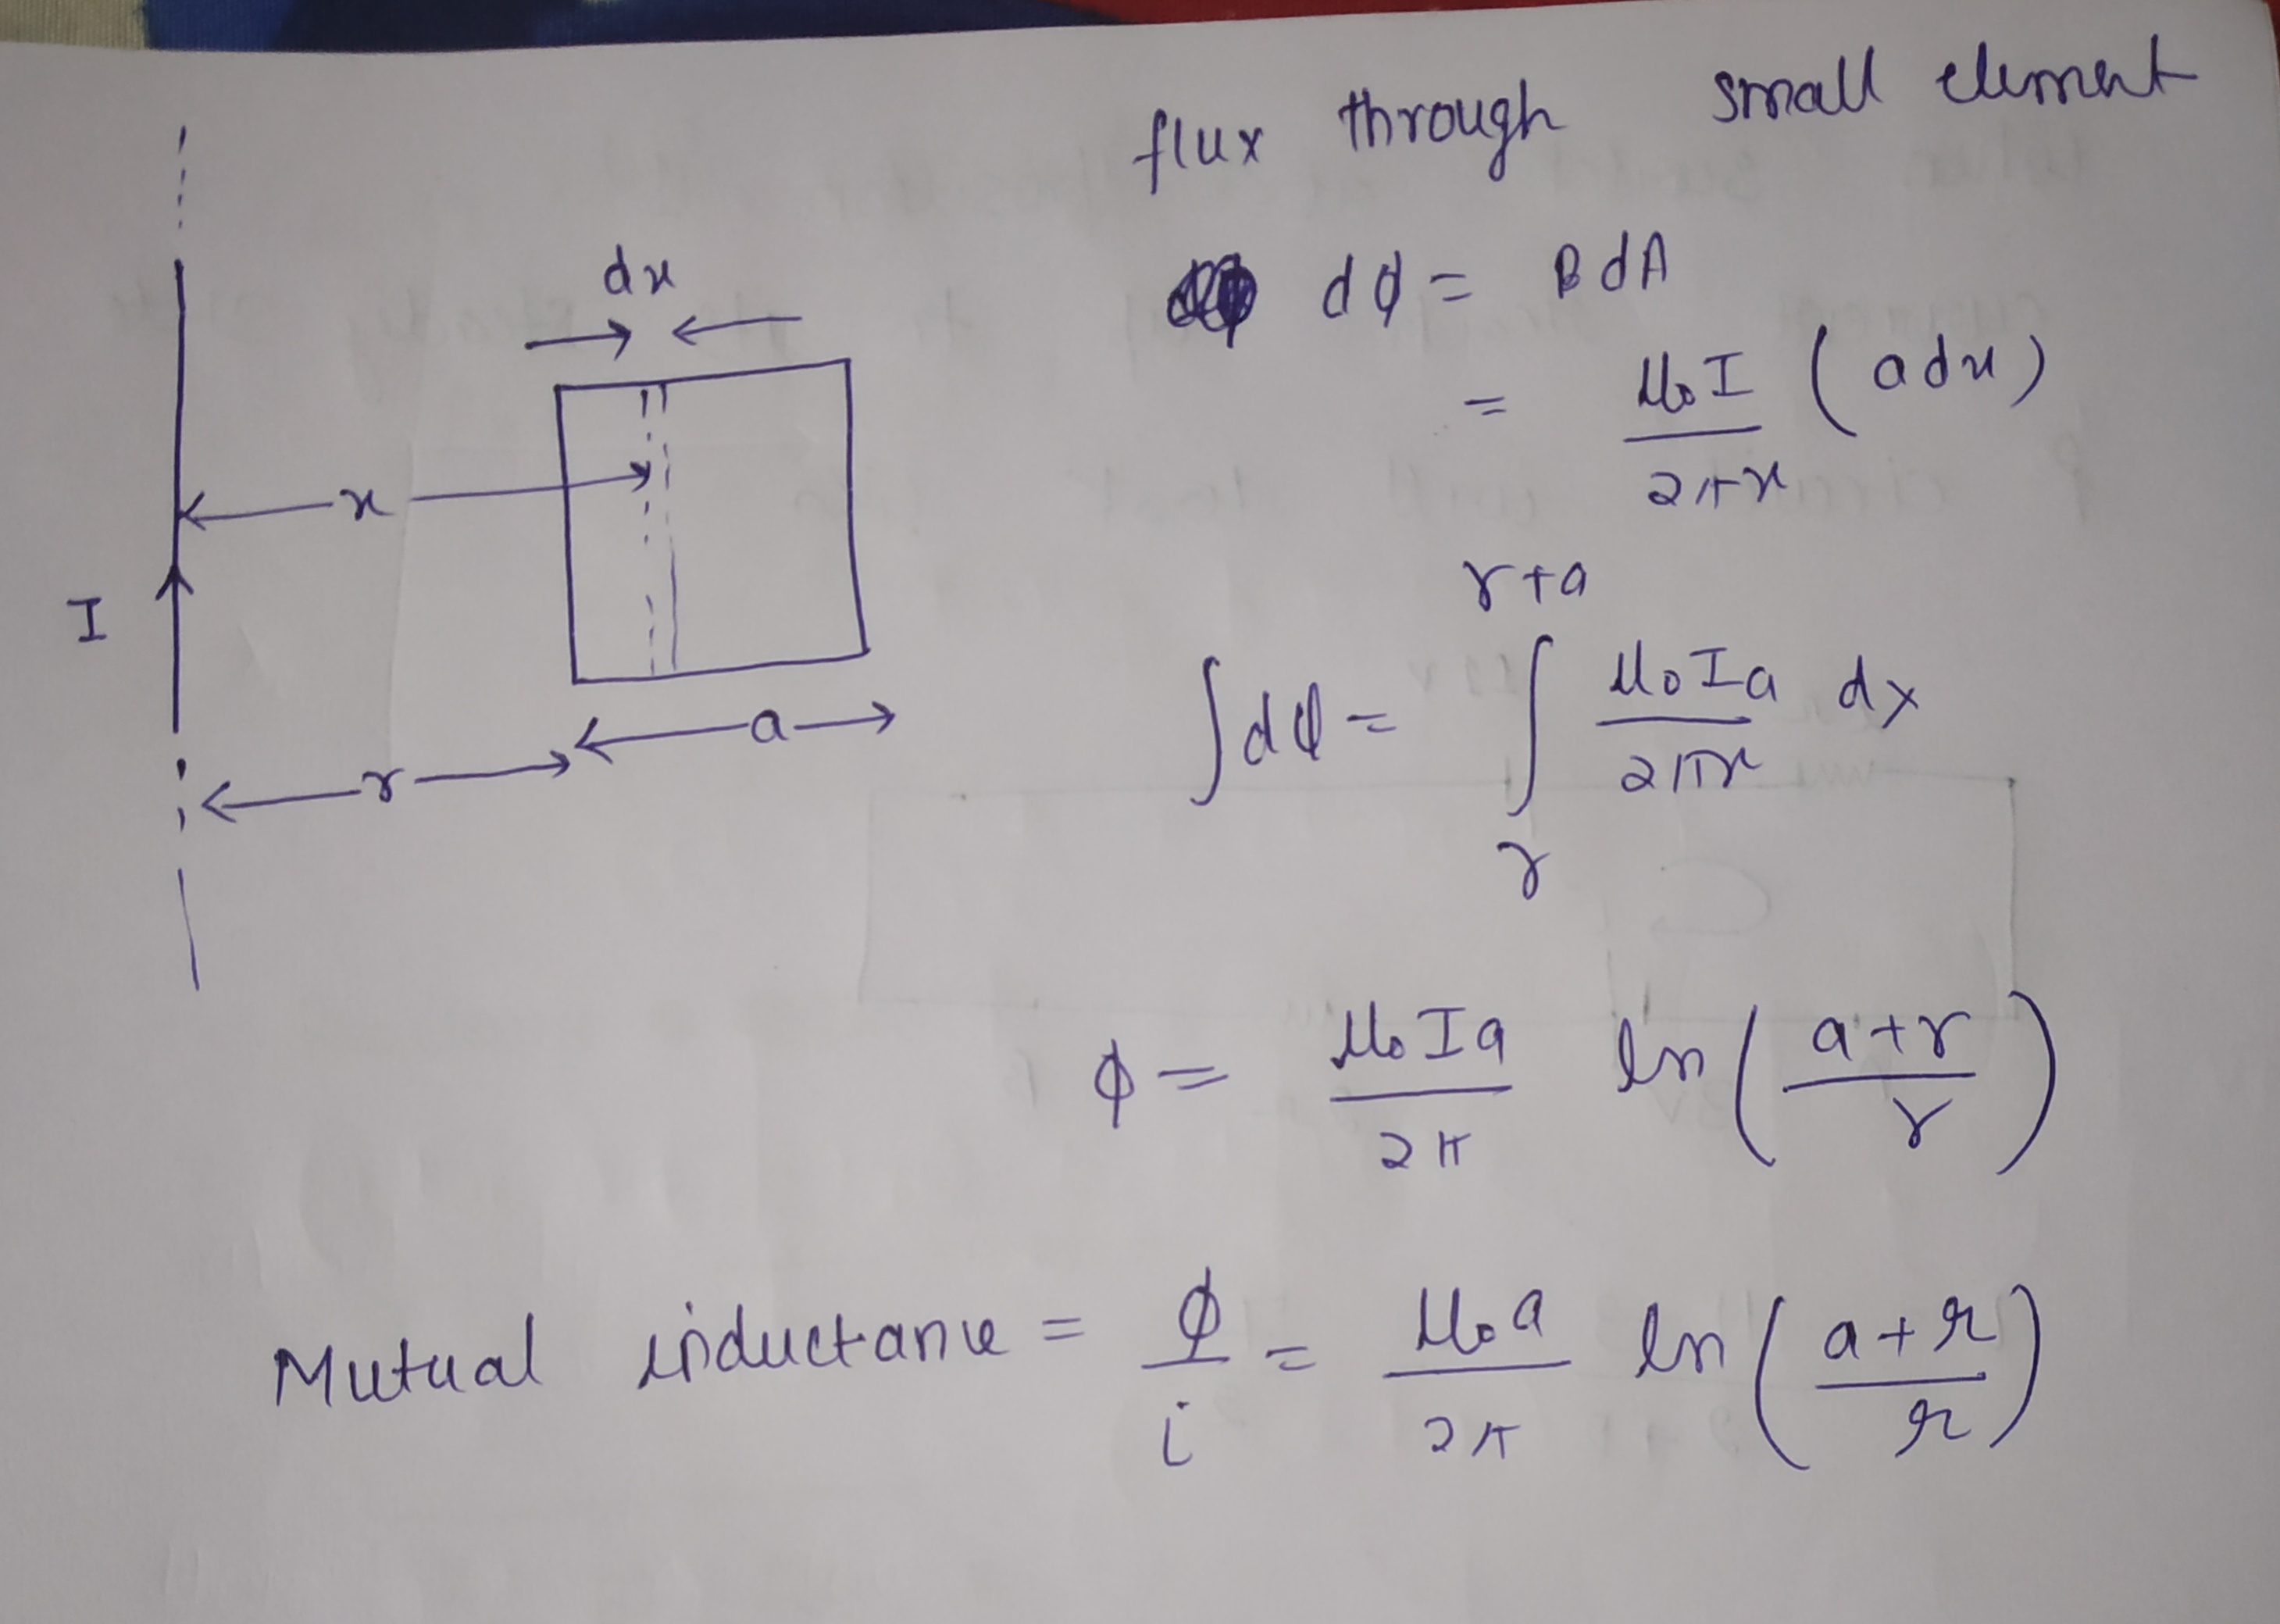 flux through small element
dx
dϕ = B dA
= μ₀I/2πx (adx)
x
I
a
r
∫dϕ = ∫_r^{r+a} μ₀Ia/2πx dx
ϕ = μ₀Ia/2π ln(a+r/r)
Mutual inductance = ϕ/i = μ₀a/2π ln(a+r/r)